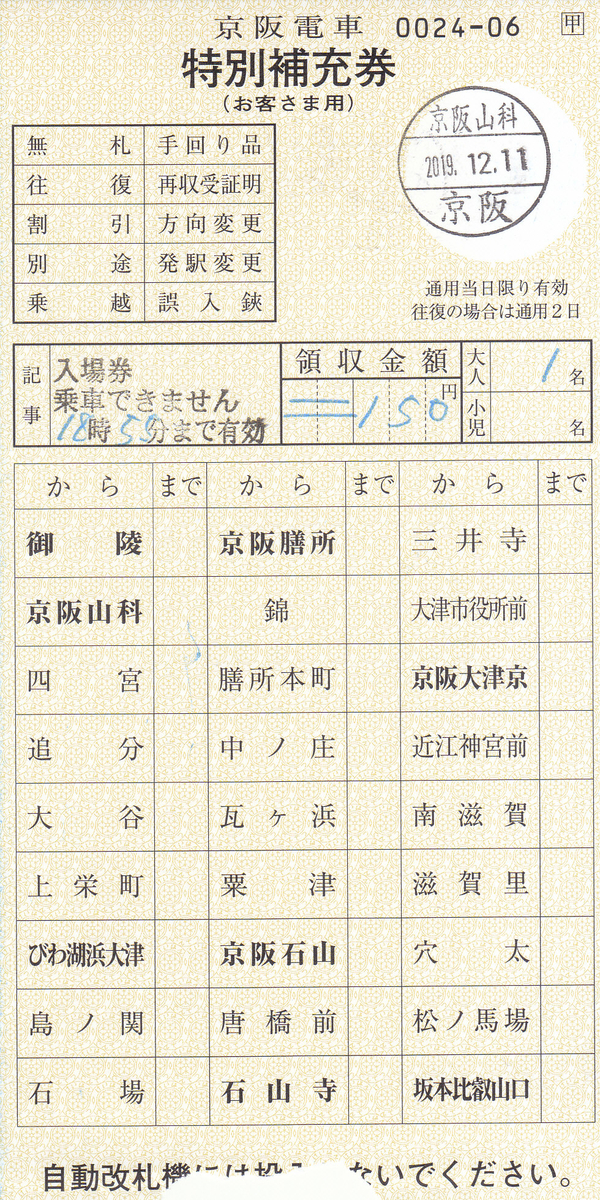 京阪電車 0024-06 甲
特別補充券
（お客さま用）
京阪山科
2019. 12.11
京阪
無札 手回り品
往復 再収受証明
割引 方向変更
別途 発駅変更
乗越 誤入鋏
通用当日限り有効
往復の場合は通用２日
記事
入場券
乗車できません
18時59分まで有効
領収金額
円
150
大人 1名
小児 名
から まで から まで から まで
御陵 京阪膳所 三井寺
京阪山科 錦 大津市役所前
四宮 膳所本町 京阪大津京
追分 中ノ庄 近江神宮前
大谷 瓦ヶ浜 南滋賀
上栄町 粟津 滋賀里
びわ湖浜大津 京阪石山 穴太
島ノ関 唐橋前 松ノ馬場
石場 石山寺 坂本比叡山口
自動改札機には ないでください。